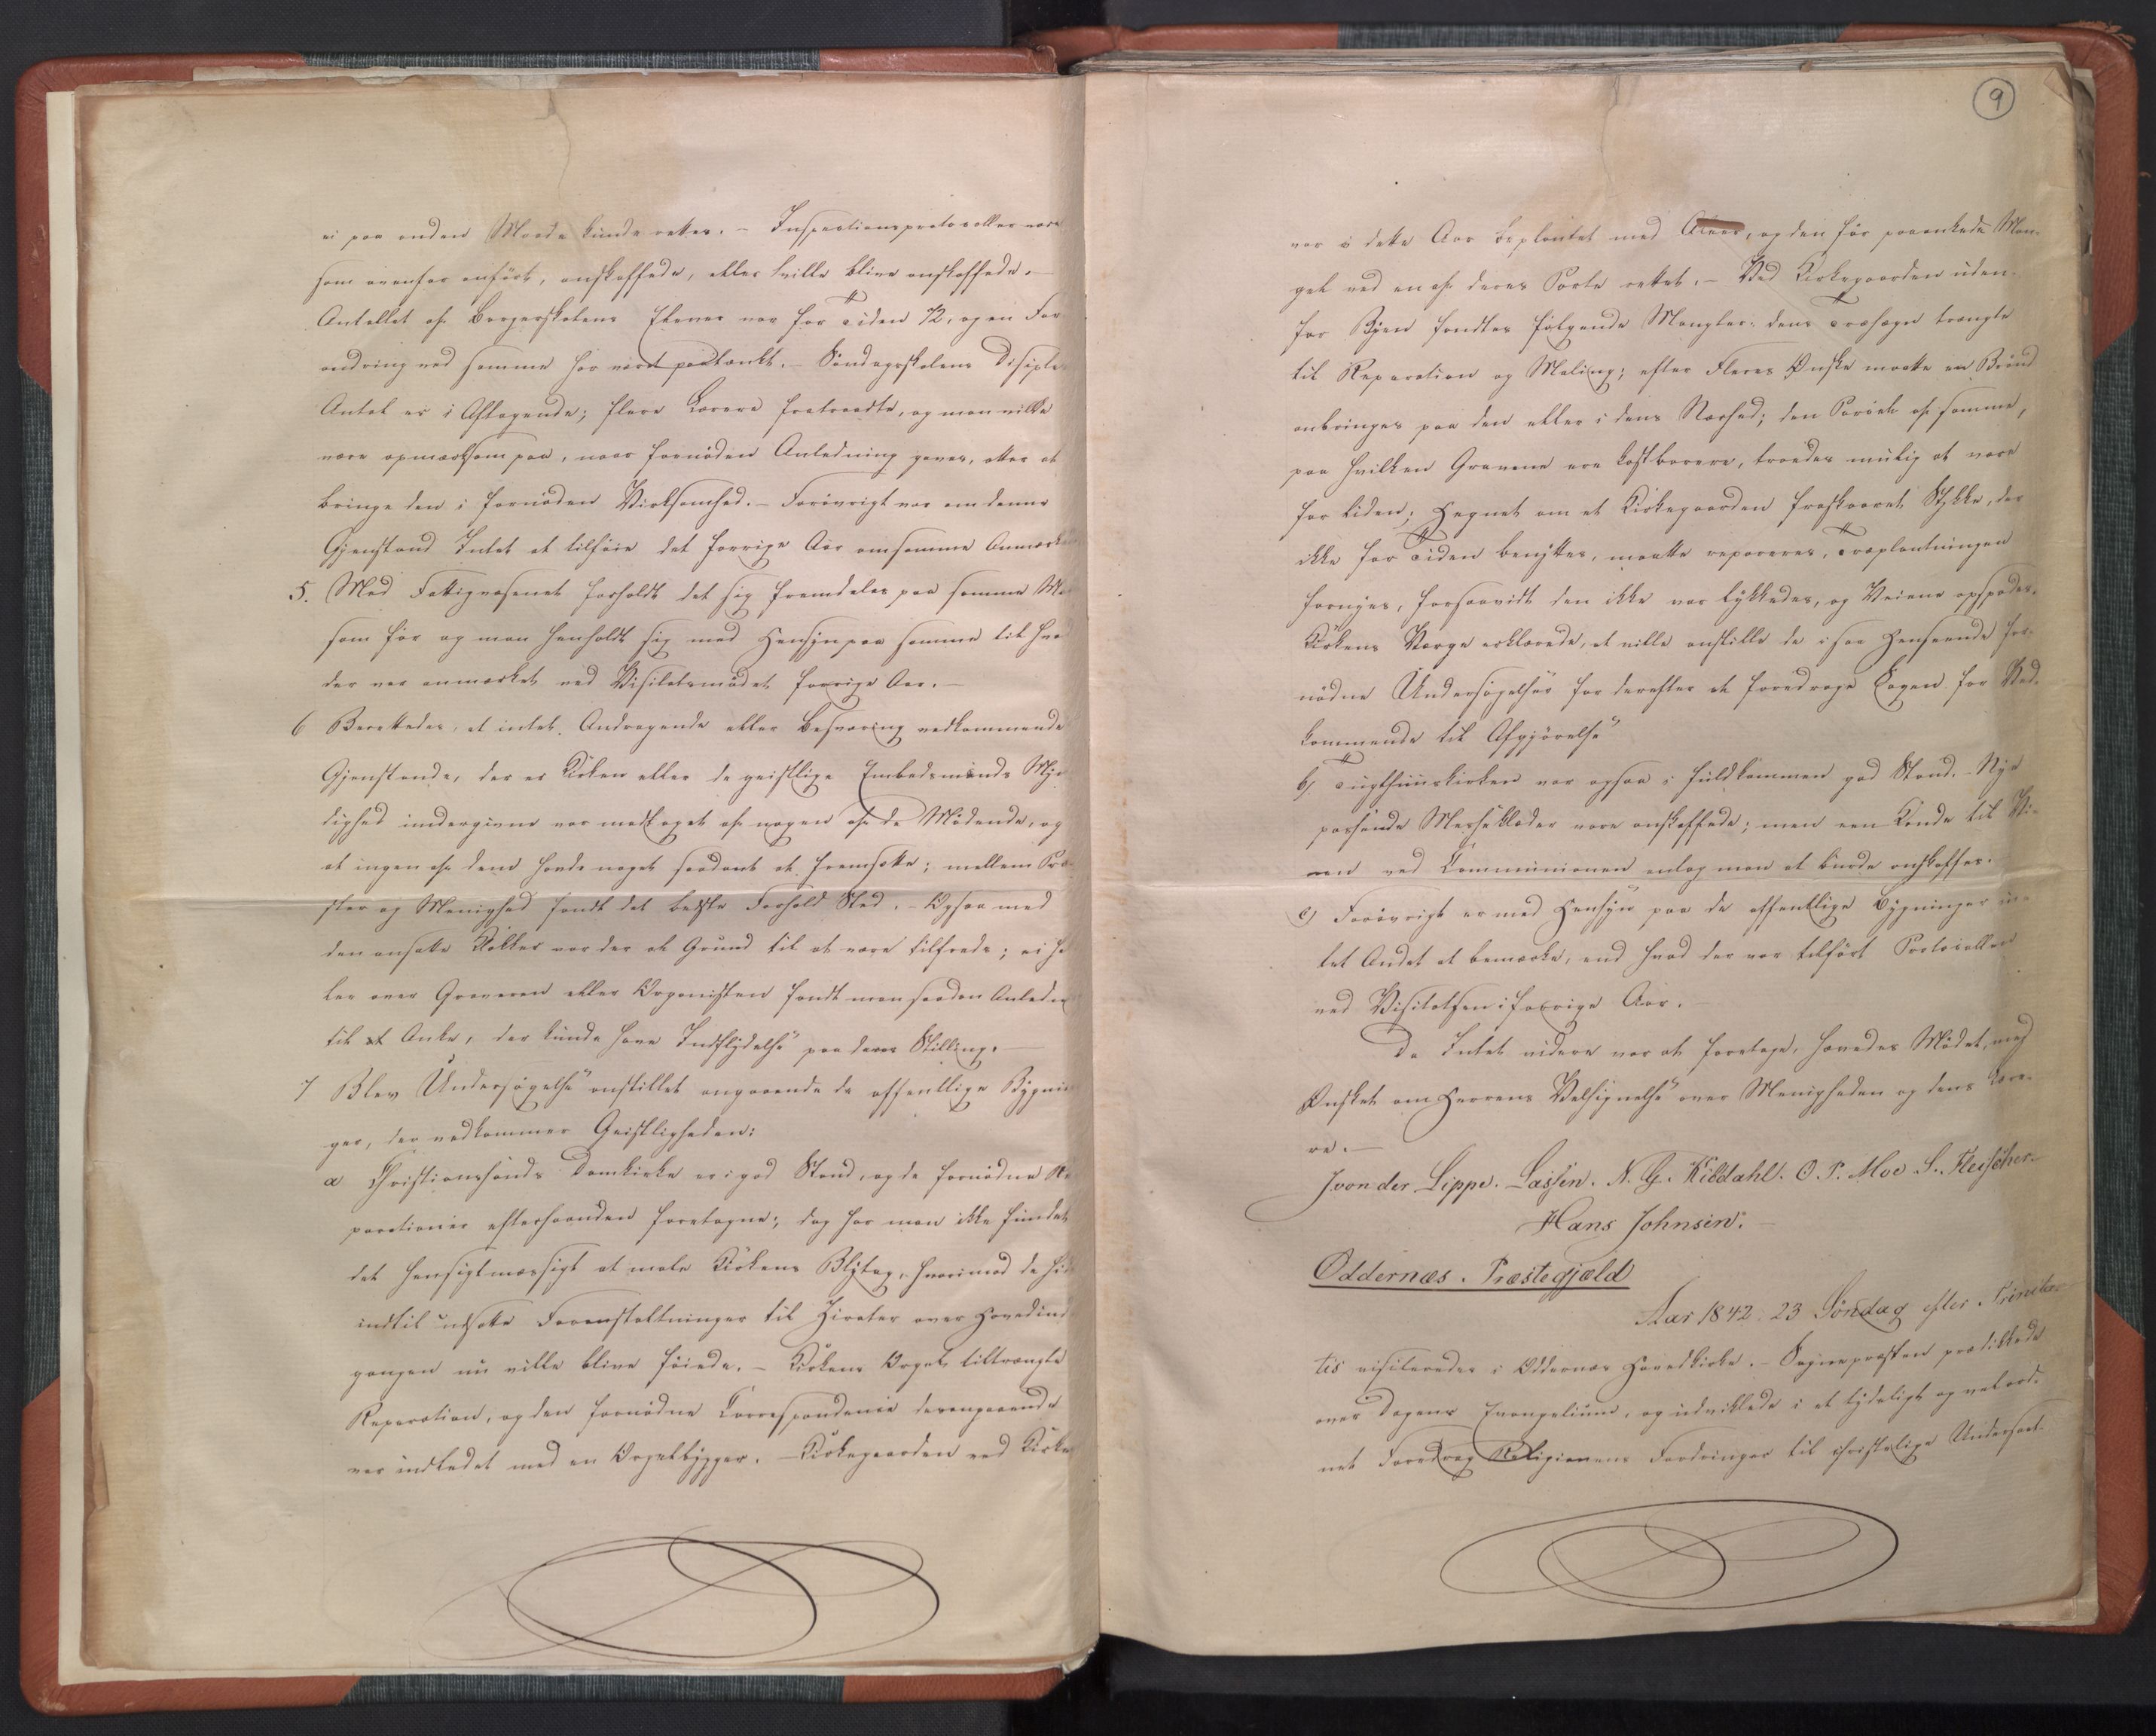 ei paa anden Maade kunde rettes. – Inspectionsprotocoller vare
som ovenfor anført, anskaffede, eller skulle blive anskaffede. –
Antallet af Borgerskolens Elever var for Tiden 72, og en For-
andring ved samme har været paatænkt. – Søndagsskolens Disciple
Antal er i Aftagende; flere Lærere fratraadte, og man vilde
være opmærksom paa, naar fornøden Anledning gaves, atter at
bringe den i fornøden Virksomhed. – Forøvrigt var om denne
Gjenstand Intet at tilføie det forrige Aar om samme Anmærkede
5. Med Fattigvæsenet forholdt det sig fremdeles paa samme Maa
som før og man henholdt sig med Hensyn paa samme til hvad
der var anmærket ved Visitatsmødet forrige Aar. –
6 Berettedes, at intet Andragende eller Besværing vedkommende
Gjenstande, der er Kirken eller de geistlige Embedsmænds Myn
dighed undergivne var modtaget af nogen af de Mødende, og
at ingen af dem havde noget saadant at fremsætte; mellem Præ-
ster og Menighed fandt det bedste Forhold Sted. – Ogsaa med
den ansatte Klokker var der al Grund til at være tilfreds; ei hel
ler over Graveren eller Organisten fandt man saadan Anledn
til at Anke, der kunde have Indflydelse paa deres Stilling. –
7 Blev Undersøgelse anstillet angaaende de offentlige Bygnin
ger, der vedkommer Geistligheden:
a Christianssands Domkirke er i god Stand, og de fornødne Re
parationer efterhaanden foretagne; dog har man ikke fundet
det hensigtmæssigt at male Kirkens Blytag, hvorimod de hid
indtil udsatte Foranstaltninger til Zirater over Hovedind
gangen nu ville blive føiede. – Kirkens Orgel tiltrængte
Reparation, og den fornødne Correspondence desangaaende
var indledet med en Orgelbygger. – Kirkegaarden ved Kirken
9
var i dette Aar beplantet med Alleer, og den før paaankede Man-
gel ved en af deres Porte rettet. – Ved Kirkegaarden uden-
for Byen fandtes følgende Mangler: dens Træhegn trængte
til Reparation og Maling; efter Fleres Ønske maatte en Brønd
anbringes paa den eller i dens Nærhed; den Partie af samme,
paa hvilken Gravene ere kostbarere, troedes muligt at være
for liden; Hegnet om et Kirkegaarden fraskaaret Stykke, der
ikke for Tiden benyttes, maatte repareres, Træplantningen
fornyes, forsaavidt den ikke var lykkedes, og Veiene opspades.
Kirkens Værge erklærede, at ville anstille de i saa Henseende for-
nødne Undersøgelser for derefter at foredrage Sagen for Ved-
kommende til Afgjørelse
b) Tugthuuskirken var ogsaa i fuldkommen god Stand. – Nye
passende Messeklæder vare anskaffede; men een Kande til Vi-
nen ved Communionen ansaae man at burde anskaffes.
c) Forøvrigt er med Hensyn paa de offentlige Bygninger in-
tet Andet at bemærke, end hvad der var tilført Protocollen
ved Visitatsen i forrige Aar. –
Da Intet videre var at foretage, hævedes Mødet, med
Ønsket om Herrens Velsignelse over Menigheden og dens Lære-
re. –
J von der Lippe. Lassen. N. G. Kildahl. O. P. Moe S. Fleischer.
Hans Johnsen. –
Oddernæs. Præstegjæld
Aar 1842. 23 Søndag efter Trinita-
tis visiteredes i Oddernæs Hovedkirke. – Sognepræsten prædikede
over Dagens Evangelium, og udviklede i et tydeligt og velord-
net Foredrag Religionens Fordringer til christelige Undersaat-